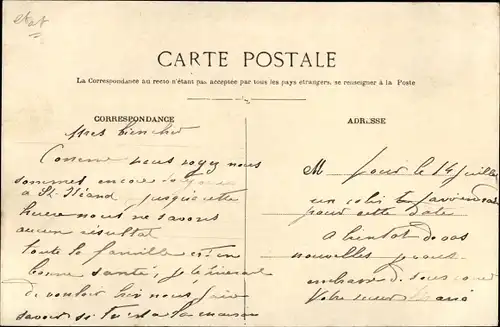 etat
CARTE POSTALE
La Correspondance au recto n'étant pas acceptée par tous les pays étrangers, se renseigner à la Poste
CORRESPONDANCE
bien cher
Comme vous voyez nous
sommes encore toujours
à St-Héand jusqu'à cette
heure nous ne savons
aucun résultat
toute la famille est en
bonne santé, je
de vouloir bien nous faire
savoir si tu la maison
ADRESSE
M pour le 14 juillet
un colis
pour cette date
A bientôt de vos
nouvelles
de tous cœur
Votre sœur Maria